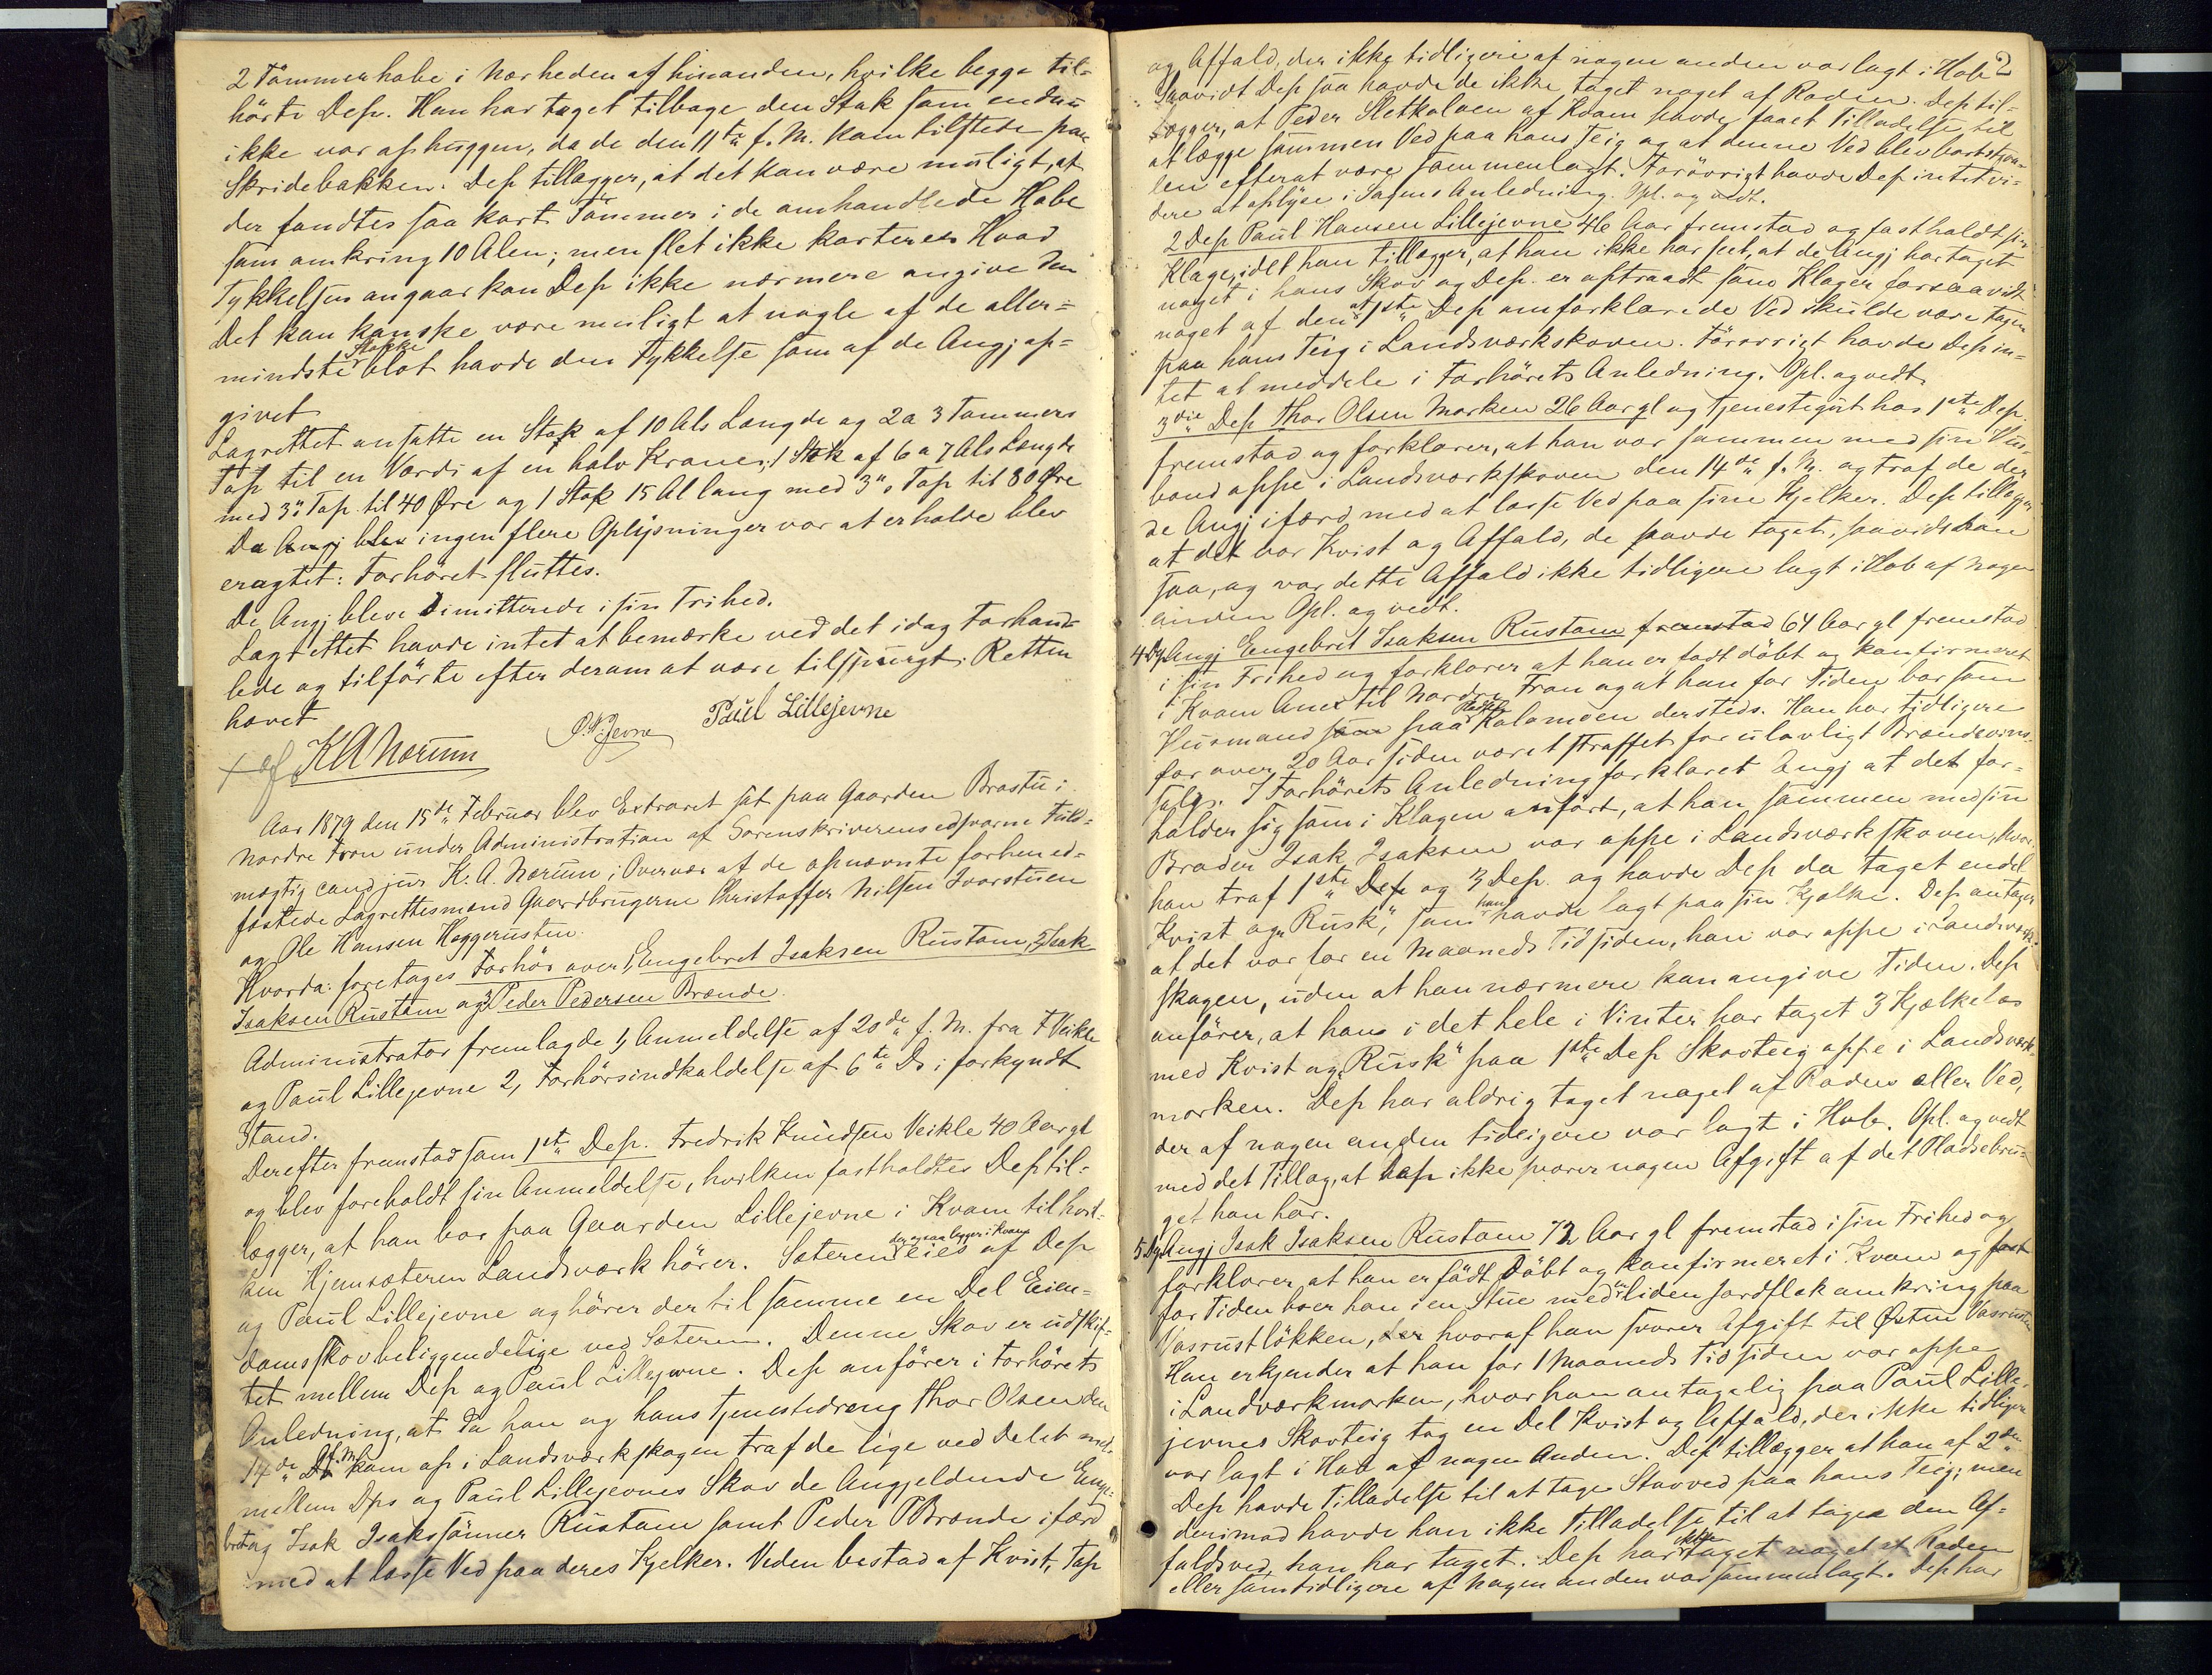 2 Tømmerhobe i Nærheden af hinanden, hvilke begge til-
hørte Dep. Han har taget tilbage den Stok som endnu
ikke var ophuggen, da de den 11te f. M. kom tilstede paa
Skridebakken. Dep tillægger, at det kan være muligt, at
der fandtes saa kort Tømmer i de omhandlede Hobe
som omkring 10 Alen; men slet ikke korteres Hvad
Tykkelsen angaar kan Dep ikke nærmere angive den
Det kan kanske være muligt at nogle af de aller-
mindste Stokke blot havde den Tykkelse som af de Angj op-
givet
Lagrettet ansatte en Stok af 10 Als Længde og 2 a 3 Tommers
Top til en Værdi af en halv Krone, 1 Stok af 6 a 7 Als Længde
med 3" Top til 40 Øre og 1 Stok 15 Al lang med 3" Top til 80 Øre
Da Angj blev ingen flere Oplysninger var at erholde blev
eragtet: Forhøret sluttes.
De Angj bleve dimitterede i sin Frihed.
Lagrettet havde intet at bemærke ved det idag Forhand-
lede og tilførte efter derom at være tilspurgt. Retten
hævet
K A Nørum P. N. Jevne Paul Lillejevne
Aar 1879 den 15de Februar blev Extraret sat paa Gaarden Brøstu i
Nordre Fron under Administration af Sorenskriverens edsvorne Fuld-
mægtig cand jur K. A. Nørum i Overvær af de opnævnte forhen ed-
fæstede Lagrettesmænd Gaardbrugerne Christoffer Nilsen Ivarstuen
og Ole Hansen Haggerusten.
Hvorda: foretages Forhør over 1, Engebret Isaksen Rustom, 2, Isak
Isaksen Rustom og 3, Peder Pedersen Brænde.
Administrator fremlagde 1, Anmeldelse af 20de f. M. fra F Veikle
og Paul Lillejevne 2, Forhørsindkaldelse af 6te Ds i forkyndt
Stand.
Derefter fremstod som 1ste Dep. Fredrik Knudsen Veikle 40 Aar gl
og blev foreholdt sin Anmeldelse, hvilken fastholdtes Dep til-
lægger, at han bor paa Gaarden Lillejevne i Kvam til hvil-
ken Hjemsæteren Landsværk hører. Sæteren der ogsaa ligger i Kvam eies af Dep
og Paul Lillejevne og hører der til samme en Del Eien-
domsskov beliggendelige ved Sæteren. Denne Skov er udskif-
tet mellem Dep og Paul Lillejevne. Dep anfører i Forhørets
Anledning, at da han og hans Tjenestedreng Thor Olsen den
14de f. M. kom op i Landsværkskogen traf de lige ved Delet
mellem Dps og Paul Lillejevnes Skov de Angjeldende Enge-
bret og Isak Isakssønner Rustom samt Peder P Brænde ifærd
med at læsse Ved paa deres Kjelker. Veden bestod af Kvist, Top
2
og Affald, der ikke tidligere af nogen anden var lagt i Hob
Saavidt Dep saa havde de ikke taget noget af Raden. Dep til-
lægger, at Peder Sletkoloen af Kvam havde faaet Tilladelse til
at lægge sammen Ved paa hans Teig og at denne Ved blev bortstjaa-
len efterat være sammenlagt. Forøvrigt havde Dep intet vi-
dere at oplyse i Sagens Anledning. Opl. og vedt.
2 Dep Paul Hansen Lillejevne 46 Aar fremstod og fastholdt sin
Klage, idet han tillægger, at han ikke har set, at de Angj har taget
noget i hans Skov og Dep. er optraadt som Klager forsaavidt
noget af den af 1ste Dep omforklarede Ved skulde være tagen
paa hans Teig i Landsværkskoven. Forøvrigt havde Dep in-
tet at meddele i Forhørets Anledning. Opl. og vedt
3die Dep Thor Olsen Morken 26 Aar gl og tjenestegut hos 1ste Dep.
fremstod og forklarer, at han var sammen med sin Hus-
bond oppe i Landsværkskoven den 14de f. M. og traf de der
de Angj ifærd med at læsse Ved paa sine Kjelker. Dep tillægger
at det var Kvist og Affald, de havde taget, saavidt han
saa, og var dette Affald ikke tidligere lagt i Hob af nogen
anden Opl. og vedt.
4 Dp Angj Engebret Isaksen Rustom fremstod 64 Aar gl fremstod
i sin Frihed og forklarer at han er født døbt og konfirmeret
i Kvam Anex til Nordre Fron og at han for Tiden bor som
Husmand som paa Pladsen Kolomoen dersteds. Han har tidligere
for over 20 Aar siden været straffet for ulovligt Brændevins-
salg. I Forhørets Anledning forklaret Angj at det for-
holder sig som i Klagen anført, at han sammen med sin
Broder Isak Isaksen var oppe i Landsværkskoven, hvor
han traf 1ste Dep og 3 Dep. og havde Dep da taget endel
Kvist og "Rusk", som han havde lagt paa sin Kjælke. Dep antager
at det var for en Maaneds Tid siden, han var oppe i Landsværk-
skogen, uden at han nærmere kan angive Tiden. Dep
anfører, at hans i det hele i Vinter har taget 3 Kjælkelæs
med Kvist og "Rusk" paa 1ste Dep Skovteig oppe i Landsværk-
morken. Dep har aldrig taget noget af Raden eller Ved,
der af nogen anden tidligere var lagt i Hob. Opl. og vedt
med det Tillæg, at Dep ikke svarer nogen Afgift af det Pladsebru-
get han har.
5 Dp Angj Isak Isaksen Rustom 72 Aar gl fremstod i sin Frihed og
forklarer, at han er født døbt og konfirmeret i Kvam og
for Tiden boer han i en Stue med en liden Jordflek omkring paa
Vasrustløkken, der hvoraf han svarer Afgift til Østen Vasrusten
Han erkjender at han for 1 Maaneds Tid siden var oppe
i Landværkmorken, hvor han antagelig paa Paul Lille-
jevnes Skovteig tog en Del Kvist og Affald, der ikke tidligere
var lagt i Hob af nogen Anden. Dep tillægger at han af 2den
Dep havde Tilladelse til at tage Stovved paa hans Teig; men
derimod havde han ikke Tilladelse til at tage den Af-
faldsved, han har taget. Dep har ikke taget noget af Raden
eller som tidligere af nogen anden var sammenlagt. Dep har